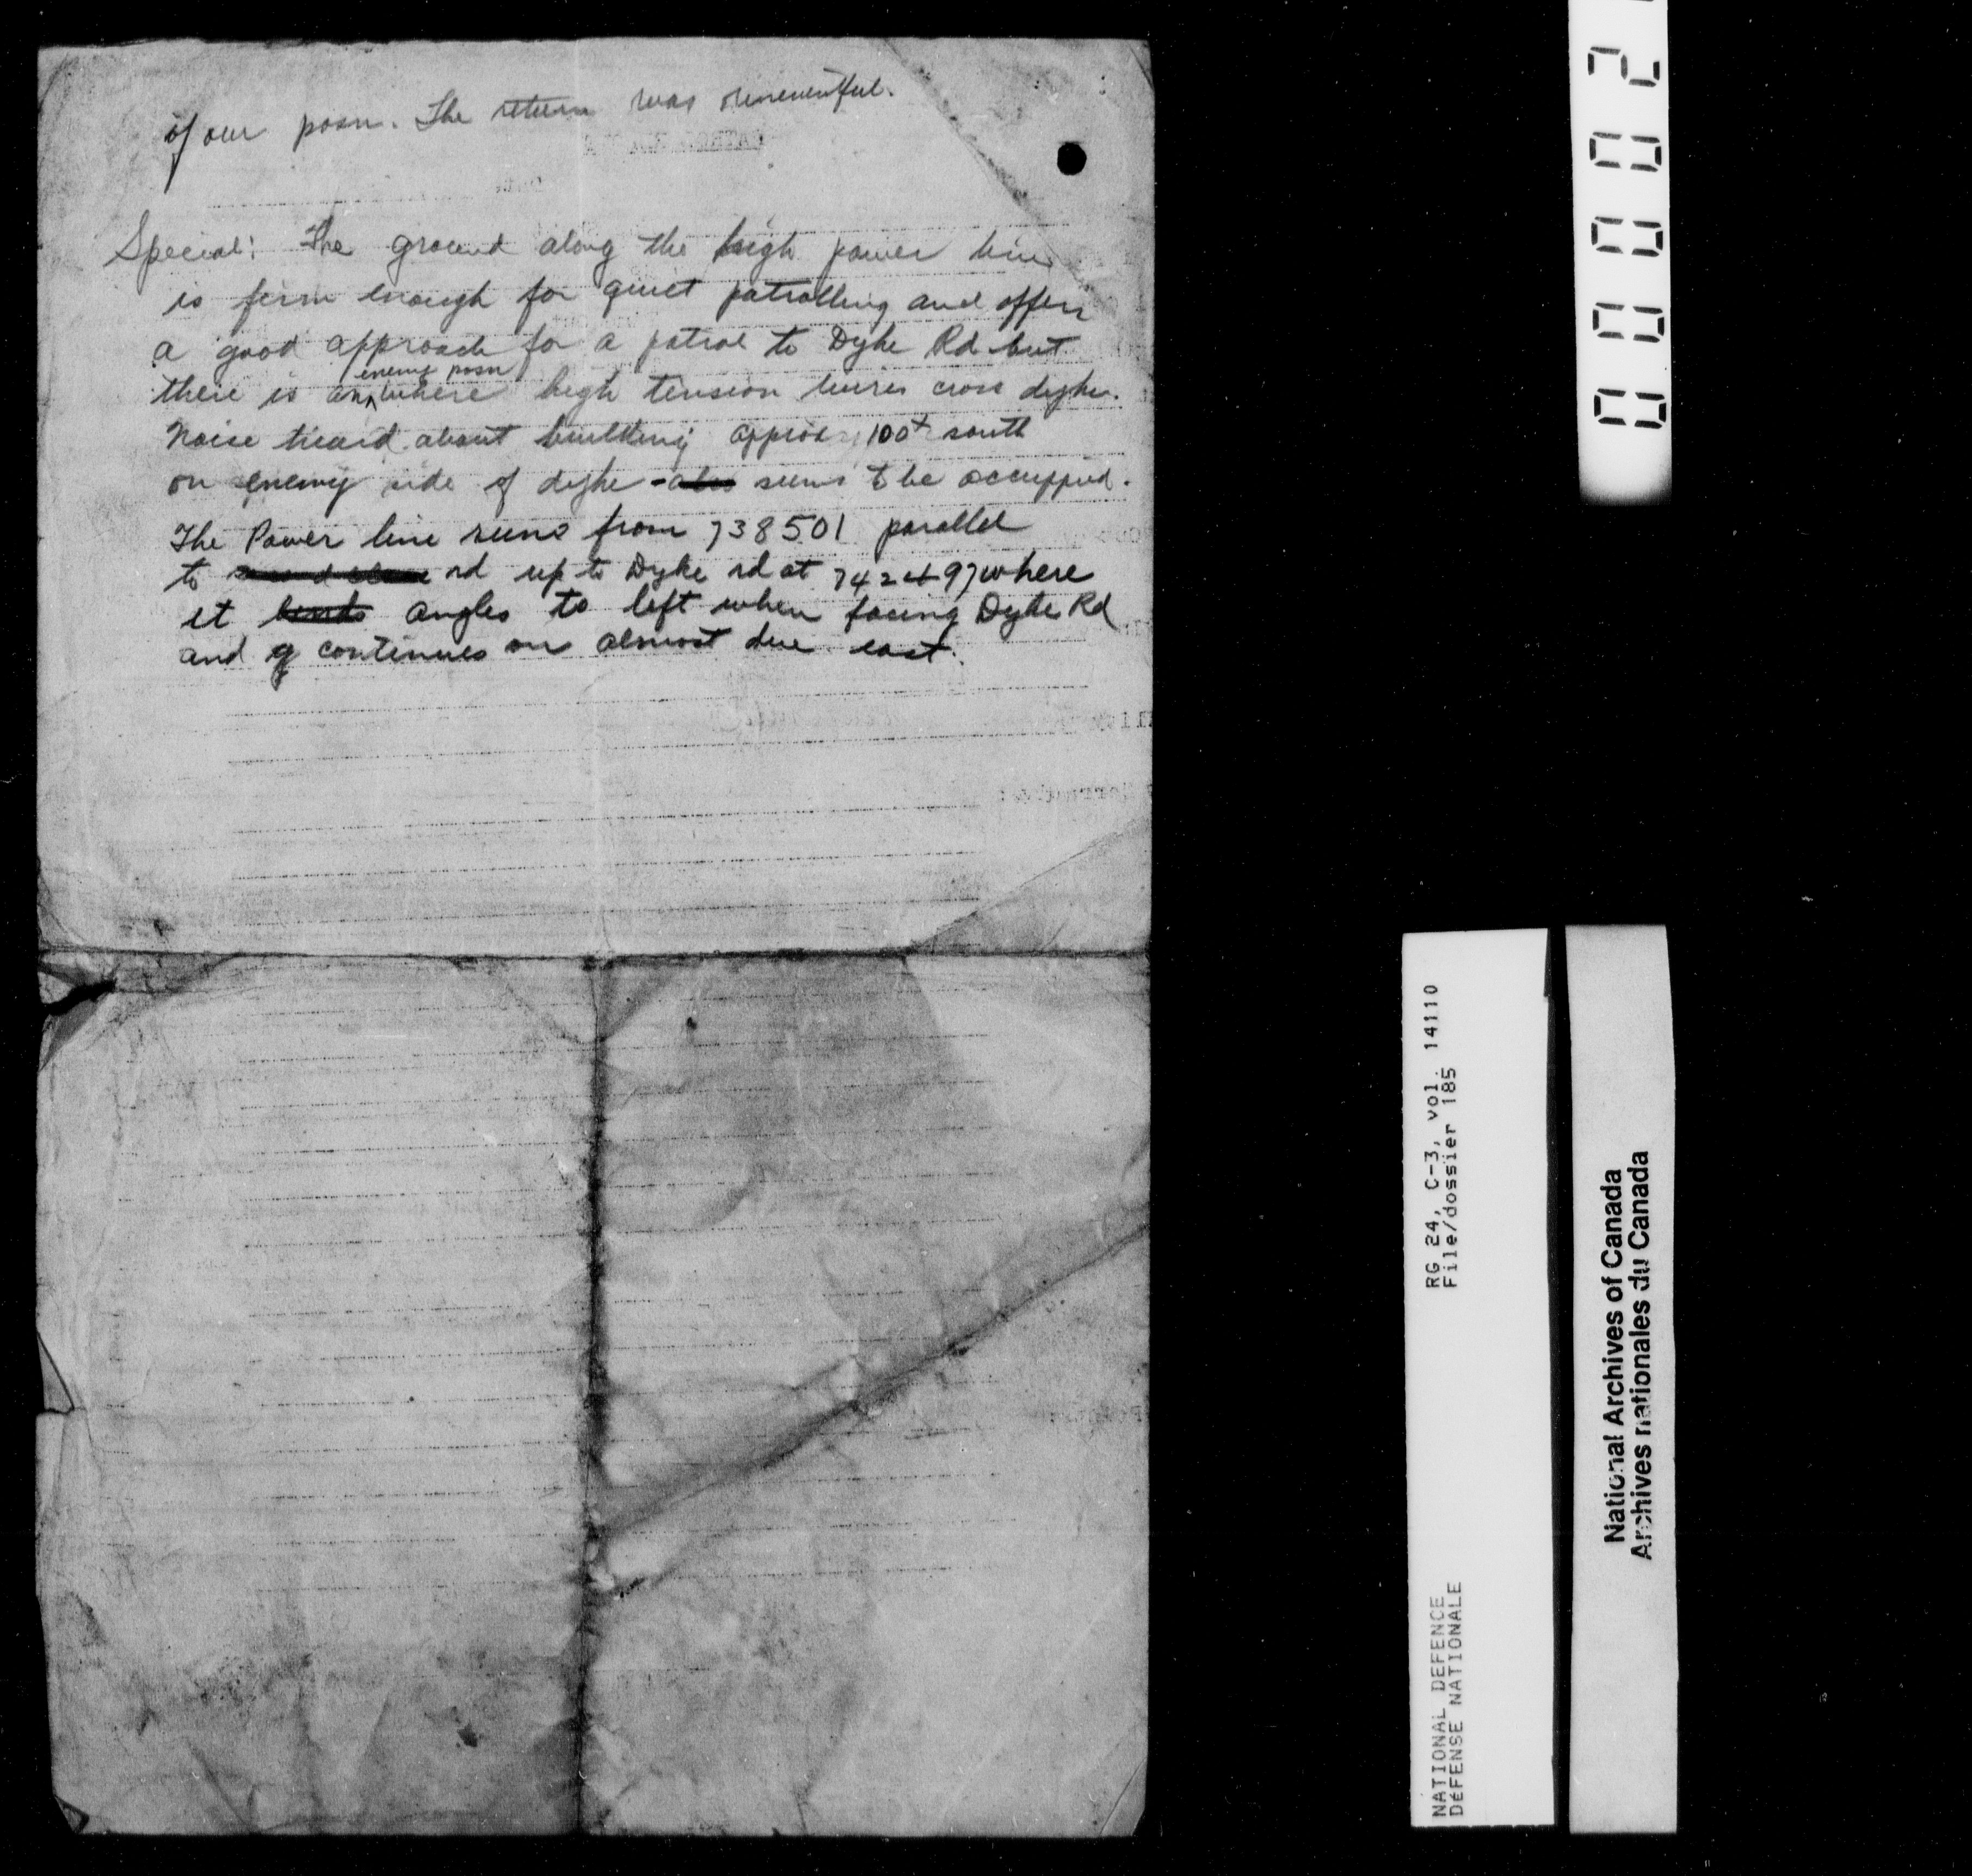 of our posn. The return was uneventful.
Special: The ground along the high power line
is firm enough for quiet patrolling and offers
a good approach for a patrol to Dyke Rd but
enemy posn
there is an where high tension wires cross dyke.
Noise heard about building approx 100x south
on enemy side of dyke - also seems to be occuppied.
The Power line runs from 738501 parallel
to rd up to Dyke rd at 742497 where
it bends angles to left when facing Dyke Rd
and g continues on almost due east.
00002
RG 24, C-3, vol. 14110
File/dossier 185
NATIONAL DEFENCE
DÉFENSE NATIONALE
National Archives of Canada
Archives nationales du Canada